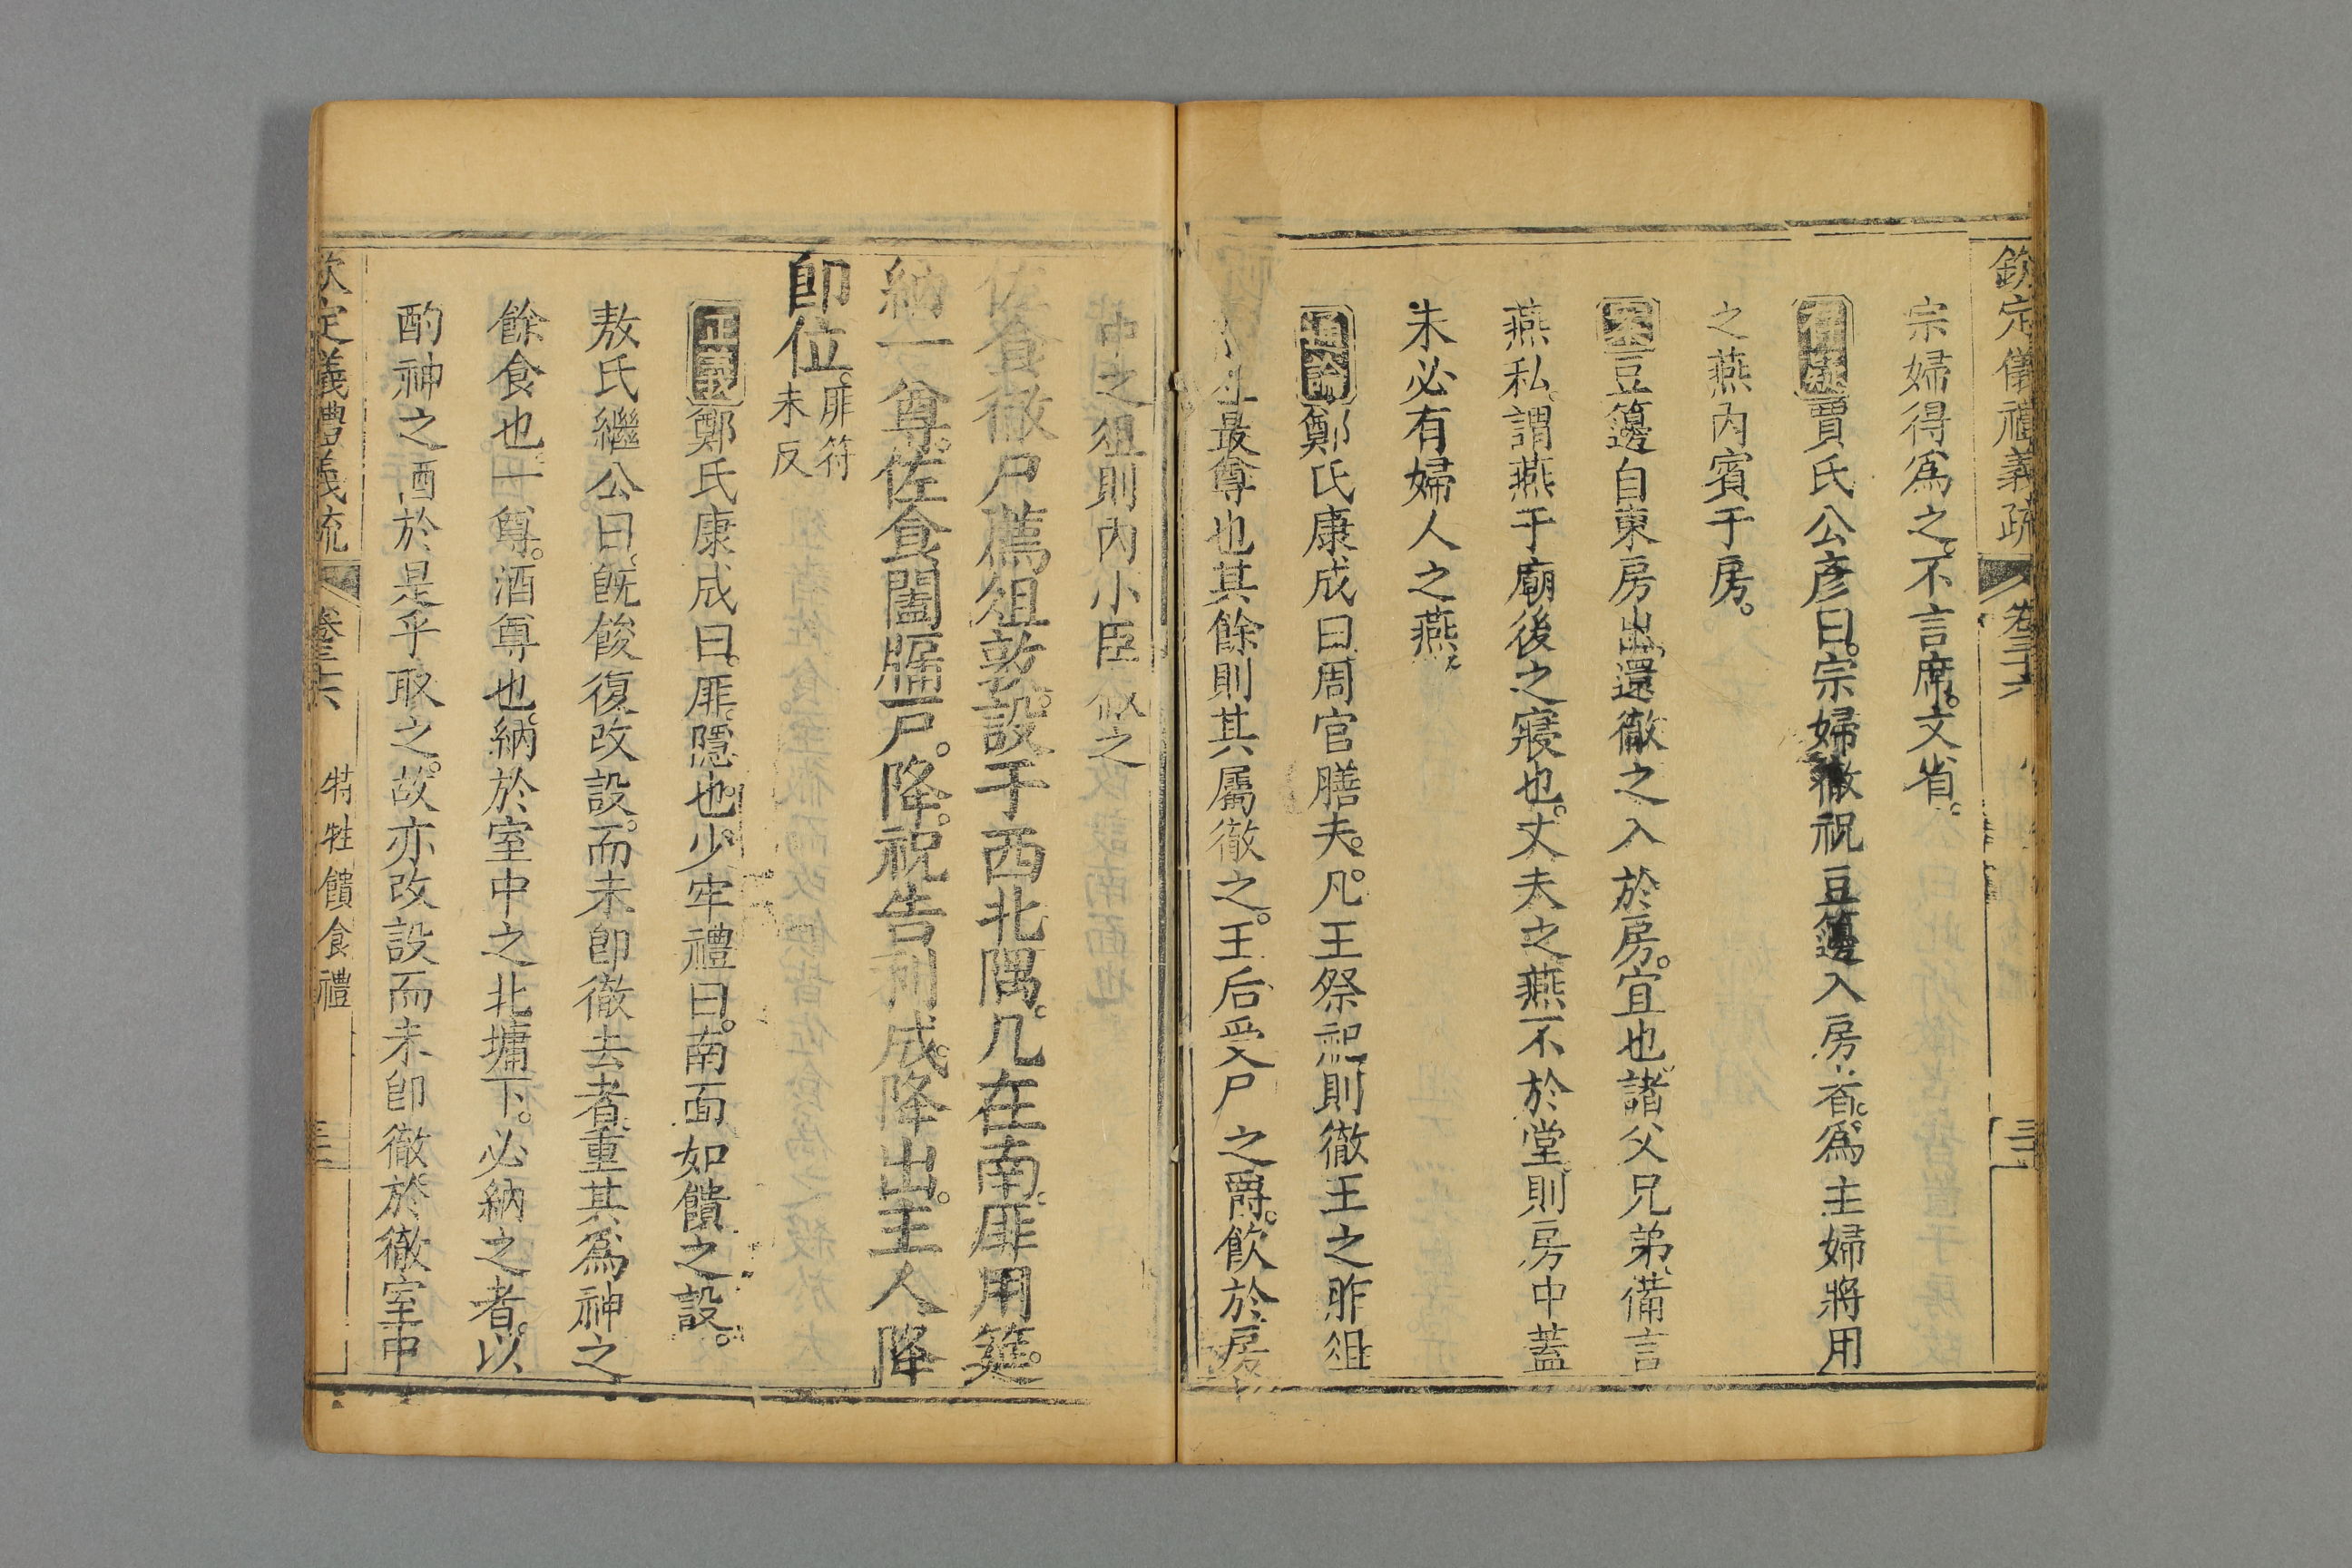 欽定儀禮義疏 卷三十六
宗婦得爲之。不言席。文省。
存疑賈氏公彥曰。宗婦徹祝豆籩入房者。爲主婦將用
之燕內賓于房。
案豆籩自東房出。還徹之入於房。宜也。諸父兄弟。備言
燕私。謂燕于廟後之寢也。丈夫之燕不於堂。則房中蓋
未必有婦人之燕。
通論鄭氏康成曰周官膳夫。凡王祭祀。則徹王之胙俎
最尊也其餘則其屬徹之。王后受尸之爵。飲於房
中之俎則內小臣徹之
佐食徹尸薦俎敦。設于西北隅。几在南。厞用筵。
納一尊。佐食闔牖戶。降。祝告利成。降出。主人降
卽位。厞符未反
正義鄭氏康成曰。厞。隱也。少牢禮曰。南面如饋之設。
敖氏繼公曰。旣餕復改設。而未卽徹去者。重其爲神之
餘食也。一尊。酒尊也。納於室中之北墉下。必納之者。以
酌神之酒於是乎取之。故亦改設而未卽徹。於徹室中
欽定儀禮義疏 卷三十六 特牲饋食禮